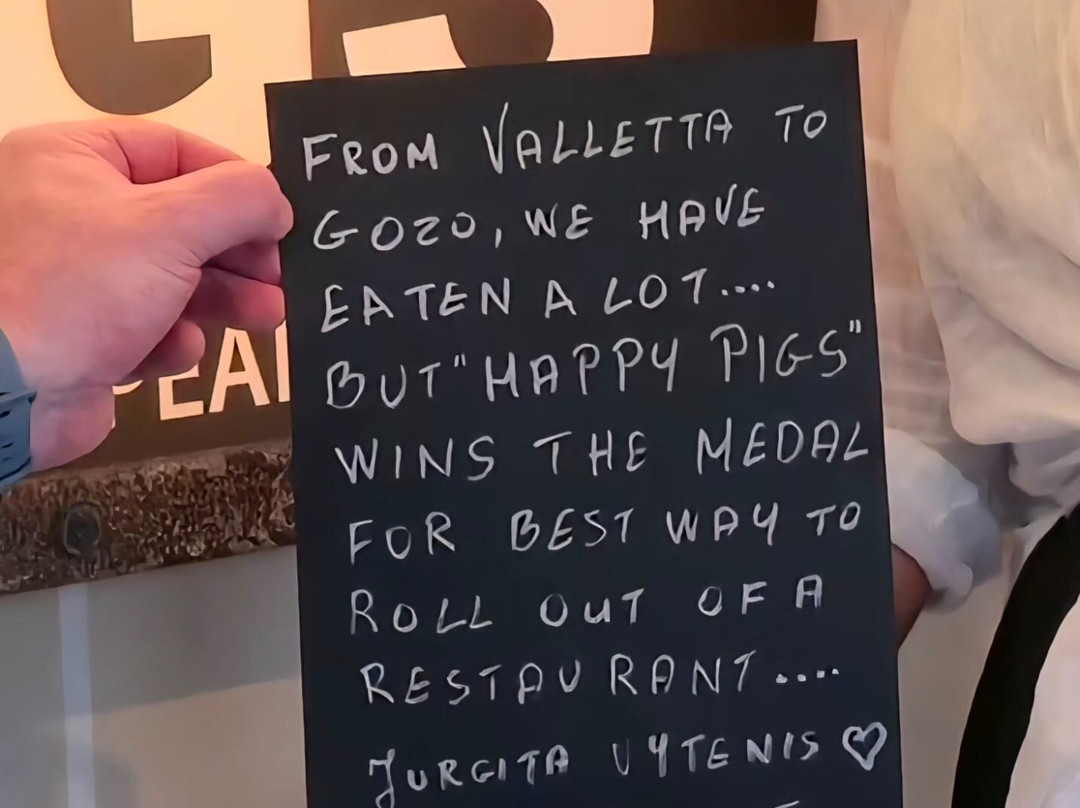 FROM VALLETTA TO
GOZO, WE HAVE
EATEN A LOT....
BUT "HAPPY PIGS"
WINS THE MEDAL
FOR BEST WAY TO
ROLL OUT OF A
RESTAURANT....
JURGITA VYTENIS ♡